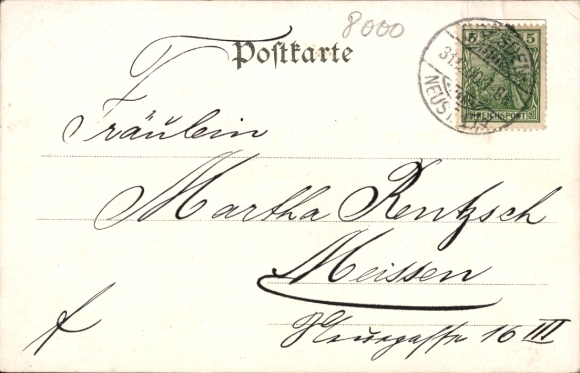 8000
Postkarte
5 5
REICHSPOST
NEUST
Fräulein
Martha Rentzsch
Meissen
16 III